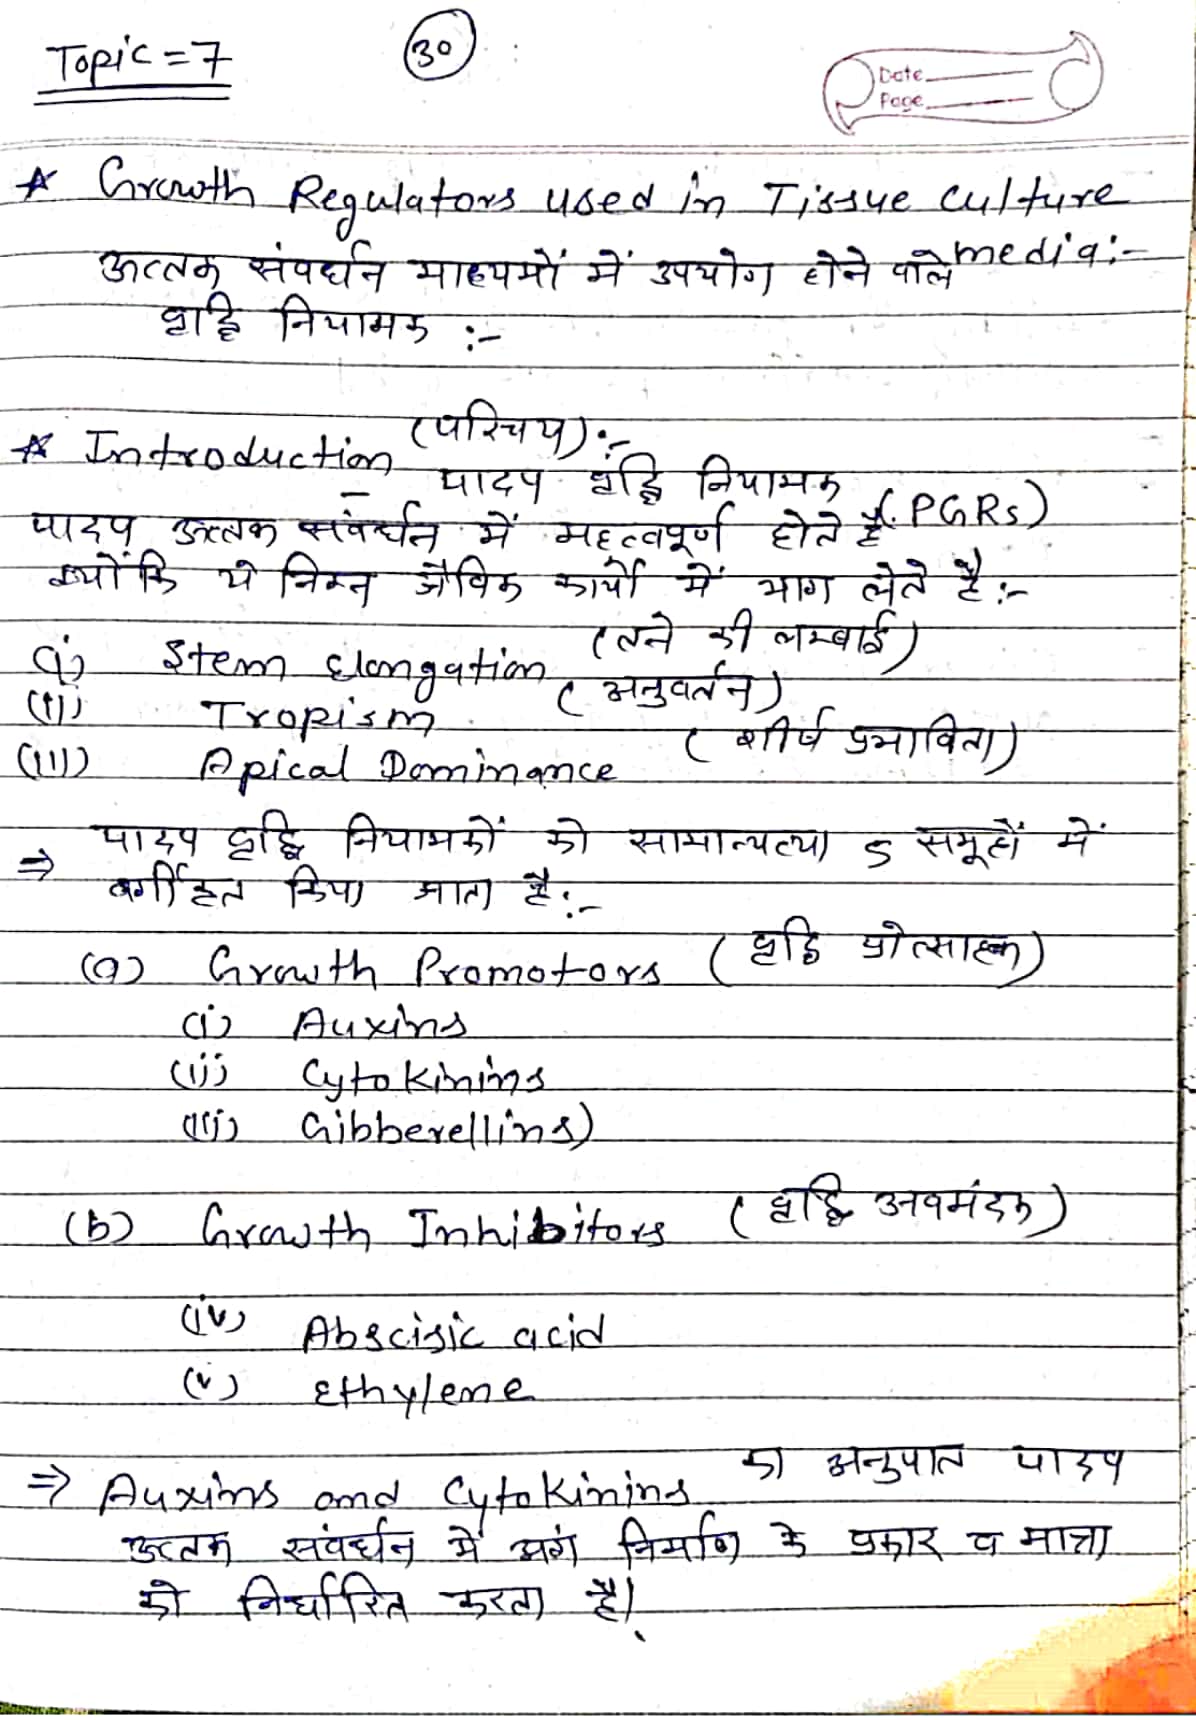 Topic = 7
30
Date
Page
☆ Growth Regulators used in Tissue Culture
media:-
ऊत्तक संवर्धन माध्यमों में उपयोग होने वाले
वृद्धि नियामक :-
☆ Introduction (परिचय):-
पादप वृद्धि नियामक
(PGRs)
पादप ऊत्तक संवर्धन में महत्वपूर्ण होते है।
क्योंकि ये निम्न जैविक कार्यों में भाग लेते है :-
(i) Stem Elongation (तने की लम्बाई)
(ii) Tropism (अनुवर्तन)
(iii) Apical Dominance (शीर्ष प्रभाविता)
⇒ पादप वृद्धि नियामकों को सामान्यत्या 5 समूहों में
वर्गीकृत किया जाता है:-
(a) Growth Promotors (वृद्धि प्रोत्साहक)
(i) Auxins
(ii) Cytokinins
(iii) Gibberellins)
(b) Growth Inhibitors (वृद्धि अवमंदक)
(iv) Abscisic acid
(v) Ethylene
⇒ Auxins and Cytokinins का अनुपात पादप
ऊत्तक संवर्धन में अंग निर्माण के प्रकार व मात्रा
को निर्धारित करता है।